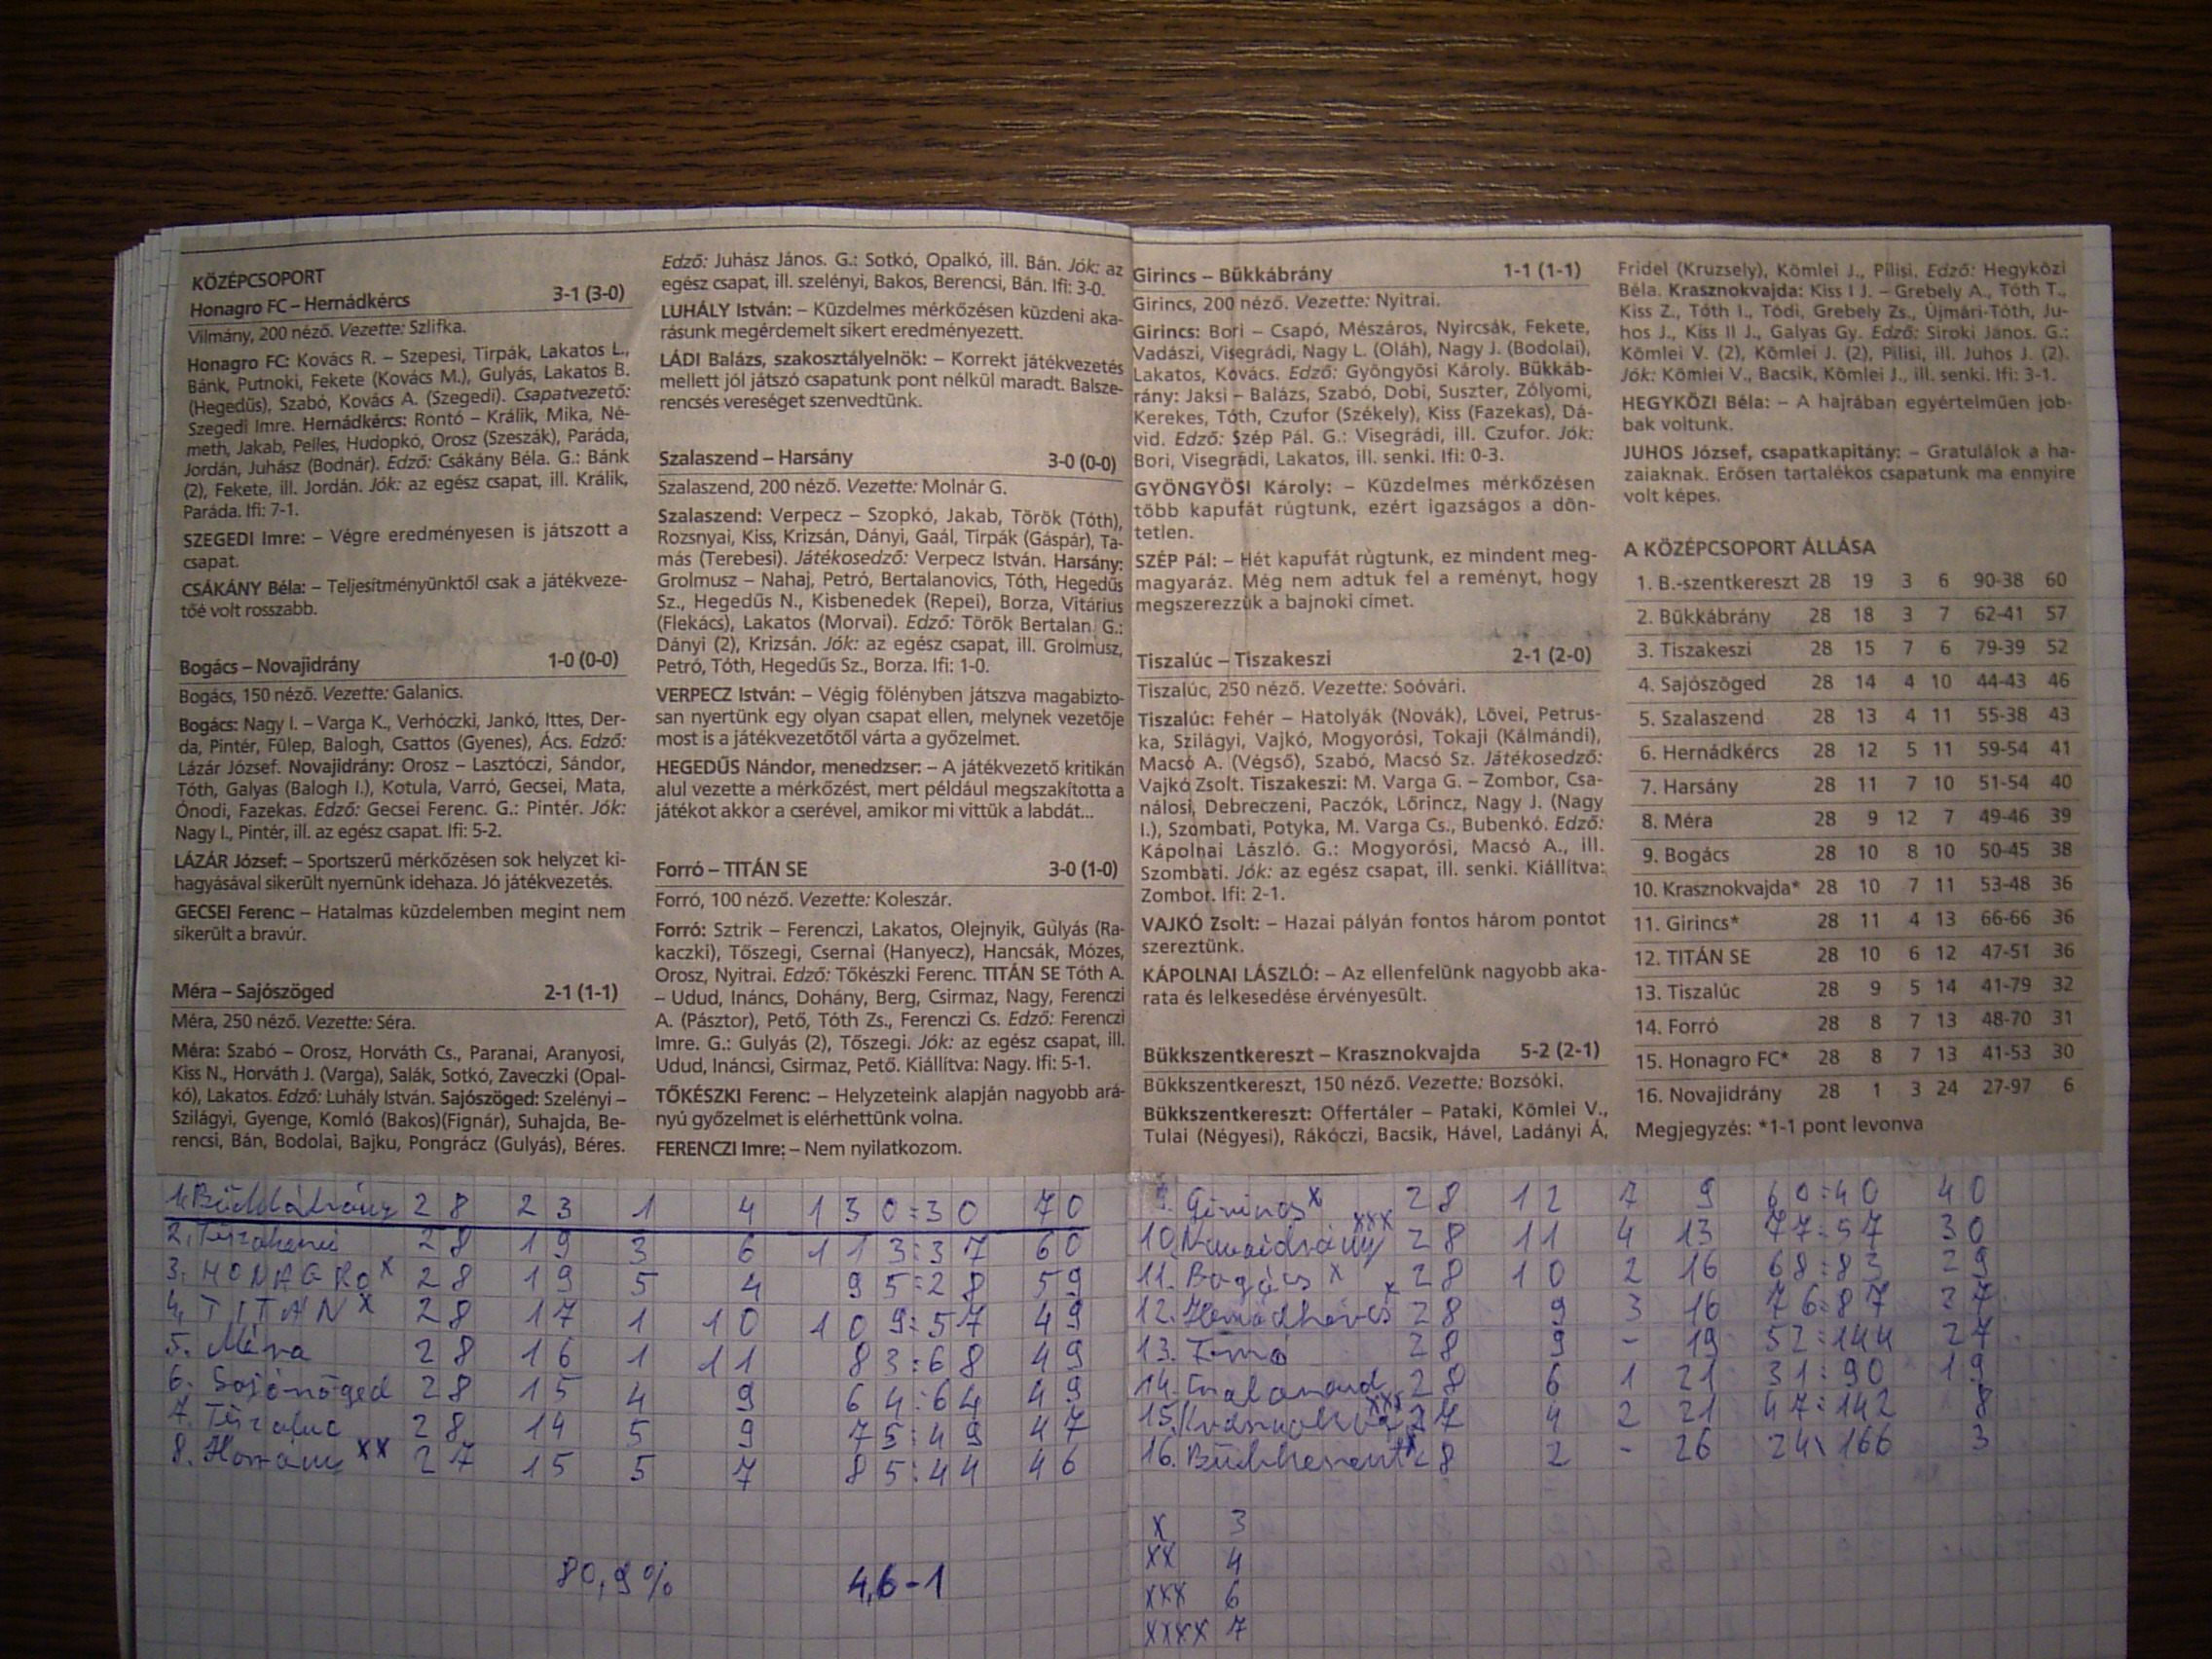 KÖZÉPCSOPORT
Honagro FC – Hernádkércs 3-1 (3-0)
Vilmány, 200 néző. Vezette: Szlifka.
Honagro FC: Kovács R. – Szepesi, Tirpák, Lakatos L.,
Bánk, Putnoki, Fekete (Kovács M.), Gulyás, Lakatos B.
(Hegedűs), Szabó, Kovács A. (Szegedi). Csapatvezető:
Szegedi Imre. Hernádkércs: Rontó – Králik, Mika, Né-
meth, Jakab, Pelles, Hudopkó, Orosz (Szeszák), Paráda,
Jordán, Juhász (Bodnár). Edző: Csákány Béla. G.: Bánk
(2), Fekete, ill. Jordán. Jók: az egész csapat, ill. Králik,
Paráda. Ifi: 7-1.
SZEGEDI Imre: – Végre eredményesen is játszott a
csapat.
CSÁKÁNY Béla: – Teljesítményünktől csak a játékveze-
tőé volt rosszabb.
Bogács – Novajidrány 1-0 (0-0)
Bogács, 150 néző. Vezette: Galanics.
Bogács: Nagy I. – Varga K., Verhóczki, Jankó, Ittes, Der-
da, Pintér, Fülep, Balogh, Csattos (Gyenes), Ács. Edző:
Lázár József. Novajidrány: Orosz – Lasztóczi, Sándor,
Tóth, Galyas (Balogh I.), Kotula, Varró, Gecsei, Mata,
Ónodi, Fazekas. Edző: Gecsei Ferenc. G.: Pintér. Jók:
Nagy I., Pintér, ill. az egész csapat. Ifi: 5-2.
LÁZÁR József: – Sportszerű mérkőzésen sok helyzet ki-
hagyásával sikerült nyernünk idehaza. Jó játékvezetés.
GECSEI Ferenc: – Hatalmas küzdelemben megint nem
sikerült a bravúr.
Méra – Sajószöged 2-1 (1-1)
Méra, 250 néző. Vezette: Séra.
Méra: Szabó – Orosz, Horváth Cs., Paranai, Aranyosi,
Kiss N., Horváth J. (Varga), Salák, Sotkó, Zaveczki (Opal-
kó), Lakatos. Edző: Luhály István. Sajószöged: Szelényi –
Szilágyi, Gyenge, Komló (Bakos)(Fignár), Suhajda, Be-
rencsi, Bán, Bodolai, Bajku, Pongrácz (Gulyás), Béres.
Edző: Juhász János. G.: Sotkó, Opalkó, ill. Bán. Jók: az
egész csapat, ill. szelényi, Bakos, Berencsi, Bán. Ifi: 3-0.
LUHÁLY István: – Küzdelmes mérkőzésen küzdeni aka-
rásunk megérdemelt sikert eredményezett.
LÁDI Balázs, szakosztályelnök: – Korrekt játékvezetés
mellett jól játszó csapatunk pont nélkül maradt. Balsze-
rencsés vereséget szenvedtünk.
Szalaszend – Harsány 3-0 (0-0)
Szalaszend, 200 néző. Vezette: Molnár G.
Szalaszend: Verpecz – Szopkó, Jakab, Török (Tóth),
Rozsnyai, Kiss, Krizsán, Dányi, Gaál, Tirpák (Gáspár), Ta-
más (Terebesi). Játékosedző: Verpecz István. Harsány:
Grolmusz – Nahaj, Petró, Bertalanovics, Tóth, Hegedűs
Sz., Hegedűs N., Kisbenedek (Repei), Borza, Vitárius
(Flekács), Lakatos (Morvai). Edző: Török Bertalan. G.:
Dányi (2), Krizsán. Jók: az egész csapat, ill. Grolmusz,
Petró, Tóth, Hegedűs Sz., Borza. Ifi: 1-0.
VERPECZ István: – Végig fölényben játszva magabizto-
san nyertünk egy olyan csapat ellen, melynek vezetője
most is a játékvezetőtől várta a győzelmet.
HEGEDŰS Nándor, menedzser: – A játékvezető kritikán
alul vezette a mérkőzést, mert például megszakította a
játékot akkor a cserével, amikor mi vittük a labdát...
Forró – TITÁN SE 3-0 (1-0)
Forró, 100 néző. Vezette: Koleszár.
Forró: Sztrik – Ferenczi, Lakatos, Olejnyik, Gulyás (Ra-
kaczki), Tőszegi, Csernai (Hanyecz), Hancsák, Mózes,
Orosz, Nyitrai. Edző: Tőkészki Ferenc. TITÁN SE Tóth A.
– Udud, Ináncs, Dohány, Berg, Csirmaz, Nagy, Ferenczi
A. (Pásztor), Pető, Tóth Zs., Ferenczi Cs. Edző: Ferenczi
Imre. G.: Gulyás (2), Tőszegi. Jók: az egész csapat, ill.
Udud, Ináncsi, Csirmaz, Pető. Kiállítva: Nagy. Ifi: 5-1.
TŐKÉSZKI Ferenc: – Helyzeteink alapján nagyobb ará-
nyú győzelmet is elérhettünk volna.
FERENCZI Imre: – Nem nyilatkozom.
Girincs – Bükkábrány 1-1 (1-1)
Girincs, 200 néző. Vezette: Nyitrai.
Girincs: Bori – Csapó, Mészáros, Nyircsák, Fekete,
Vadászi, Visegrádi, Nagy L. (Oláh), Nagy J. (Bodolai),
Lakatos, Kovács. Edző: Gyöngyösi Károly. Bükkáb-
rány: Jaksi – Balázs, Szabó, Dobi, Suszter, Zólyomi,
Kerekes, Tóth, Czufor (Székely), Kiss (Fazekas), Dá-
vid. Edző: Szép Pál. G.: Visegrádi, ill. Czufor. Jók:
Bori, Visegrádi, Lakatos, ill. senki. Ifi: 0-3.
GYÖNGYÖSI Károly: – Küzdelmes mérkőzésen
több kapufát rúgtunk, ezért igazságos a dön-
tetlen.
SZÉP Pál: – Hét kapufát rúgtunk, ez mindent meg-
magyaráz. Még nem adtuk fel a reményt, hogy
megszerezzük a bajnoki címet.
Tiszalúc – Tiszakeszi 2-1 (2-0)
Tiszalúc, 250 néző. Vezette: Soóvári.
Tiszalúc: Fehér – Hatolyák (Novák), Lövei, Petrus-
ka, Szilágyi, Vajkó, Mogyorósi, Tokaji (Kálmándi),
Macsó A. (Végső), Szabó, Macsó Sz. Játékosedző:
Vajkó Zsolt. Tiszakeszi: M. Varga G. – Zombor, Csa-
nálosi, Debreczeni, Paczók, Lőrincz, Nagy J. (Nagy
I.), Szombati, Potyka, M. Varga Cs., Bubenkó. Edző:
Kápolnai László. G.: Mogyorósi, Macsó A., ill.
Szombati. Jók: az egész csapat, ill. senki. Kiállítva:
Zombor. Ifi: 2-1.
VAJKÓ Zsolt: – Hazai pályán fontos három pontot
szereztünk.
KÁPOLNAI LÁSZLÓ: – Az ellenfelünk nagyobb aka-
rata és lelkesedése érvényesült.
Bükkszentkereszt – Krasznokvajda 5-2 (2-1)
Bükkszentkereszt, 150 néző. Vezette: Bozsóki.
Bükkszentkereszt: Offertáler – Pataki, Kömlei V.,
Tulai (Négyesi), Rákóczi, Bacsik, Hável, Ladányi Á,
Fridel (Kruzsely), Kömlei J., Pilisi. Edző: Hegyközi
Béla. Krasznokvajda: Kiss I J. – Grebely A., Tóth T.,
Kiss Z., Tóth I., Tódi, Grebely Zs., Újmári-Tóth, Ju-
hos J., Kiss II J., Galyas Gy. Edző: Siroki János. G.:
Kömlei V. (2), Kömlei J. (2), Pilisi, ill. Juhos J. (2).
Jók: Kömlei V., Bacsik, Kömlei J., ill. senki. Ifi: 3-1.
HEGYKÖZI Béla: – A hajrában egyértelműen job-
bak voltunk.
JUHOS József, csapatkapitány: – Gratulálok a ha-
zaiaknak. Erősen tartalékos csapatunk ma ennyire
volt képes.
A KÖZÉPCSOPORT ÁLLÁSA
1. B.-szentkereszt 28 19 3 6 90-38 60
2. Bükkábrány 28 18 3 7 62-41 57
3. Tiszakeszi 28 15 7 6 79-39 52
4. Sajószöged 28 14 4 10 44-43 46
5. Szalaszend 28 13 4 11 55-38 43
6. Hernádkércs 28 12 5 11 59-54 41
7. Harsány 28 11 7 10 51-54 40
8. Méra 28 9 12 7 49-46 39
9. Bogács 28 10 8 10 50-45 38
10. Krasznokvajda* 28 10 7 11 53-48 36
11. Girincs* 28 11 4 13 66-66 36
12. TITÁN SE 28 10 6 12 47-51 36
13. Tiszalúc 28 9 5 14 41-79 32
14. Forró 28 8 7 13 48-70 31
15. Honagro FC* 28 8 7 13 41-53 30
16. Novajidrány 28 1 3 24 27-97 6
Megjegyzés: *1-1 pont levonva
1. Bükkábrány 28 23 1 4 130:30 70
2. Tiszakeszi 28 19 3 6 113:37 60
3. HONAGRO x 28 19 5 4 95:28 59
4. TITÁN x 28 17 1 10 109:57 49
5. Méra 28 16 1 11 83:68 49
6. Sajószöged 28 15 4 9 64:64 49
7. Tiszaluc 28 14 5 9 75:49 47
8. Harsány xx 27 15 5 7 85:44 46
9. Girincs x 28 12 7 9 60:40 40
10. Novajidrány xxx 28 11 4 13 77:57 30
11. Bogács x 28 10 2 16 68:83 29
12. Hernádkércs x 28 9 3 16 76:87 27
13. Forró 28 9 - 19 52:144 27
14. Szalaszend 28 6 1 21 31:90 19
15. 27 4 2 21 47:142 8
16. 28 2 - 26 24: 166 3
80,9% 4,6-1
x 3
xx 4
xxx 6
xxxx 7